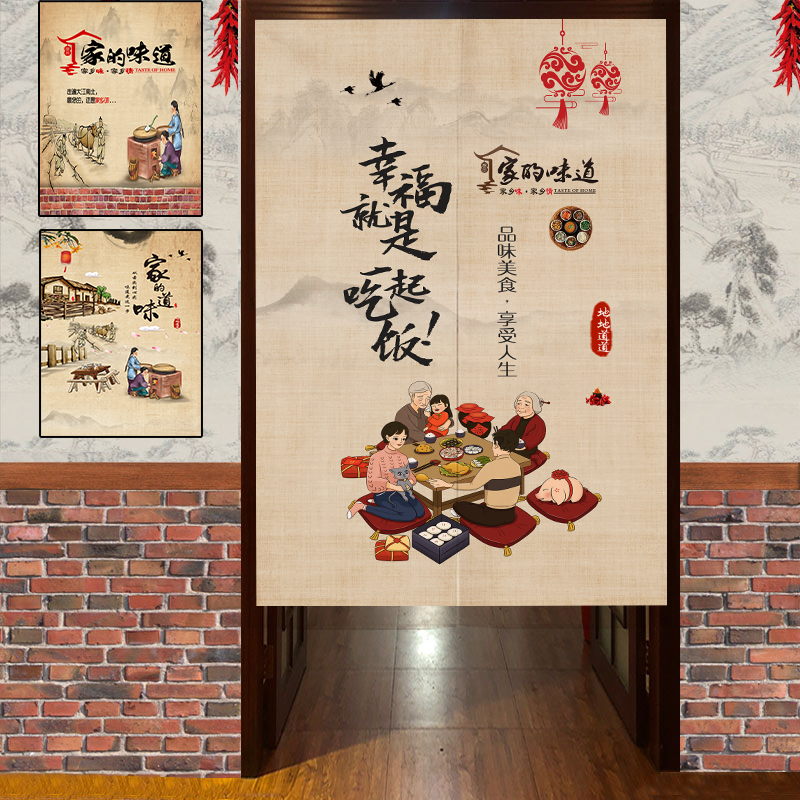 家的味道
家乡味·家乡情 TASTE OF HOME
走遍大江南北，
家
的
味
道
幸福
就是
一起
吃
饭！
家的味道
家乡味·家乡情 TASTE OF HOME
品味美食，享受人生
地地道道